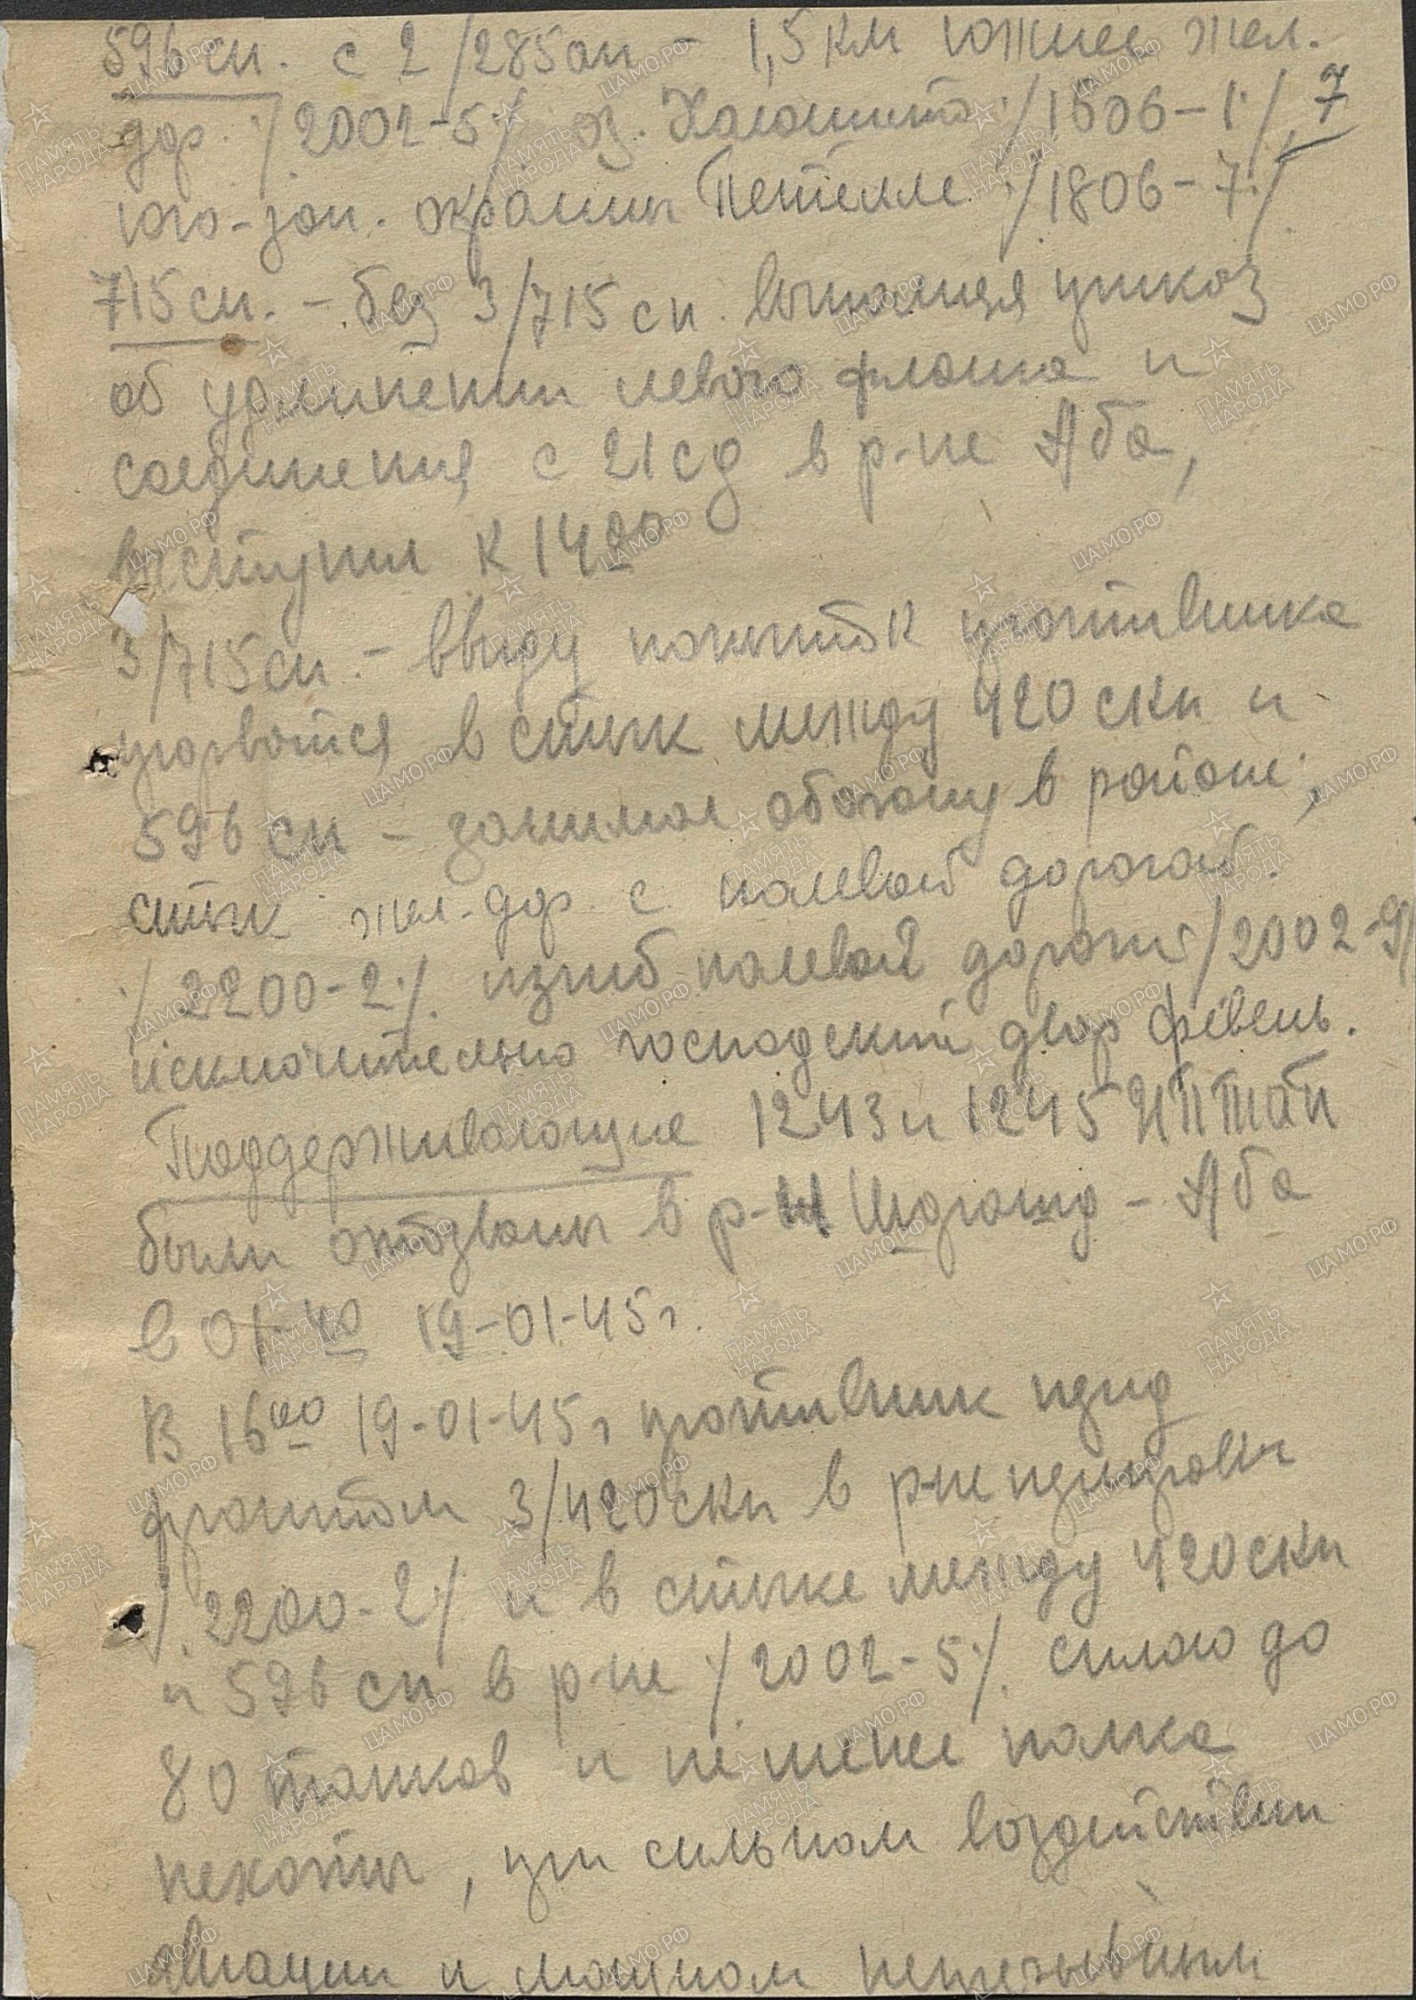 596 сп. с 2/285 ап – 1,5 км южнее жел.
дор. /2002-5/ оз. /1606-1/, 7
юго-зап. окраины Петелле /1806-7/.
715 сп. – без 3/715 сп. выполняя приказ
об удлинении левого фланга и
соединения с 21 сд в р-не Аба,
выступил к 14 00
3/715 сп. – ввиду попыток противника
прорваться в стык между 420 скп и
596 сп – занимал оборону в районе;
стык жел. дор. с полевой дорогой.
/2200-2/. изгиб полевой дороги /2002-9/
исключительно господский двор Фёвень.
Поддерживающие 1243 и 1245 ИПТАП
были отозваны в р-н Шорошд – Аба
в 01-40 19-01-45 г.
В 16 00 19-01-45 г противник перед
фронтом 3/420 скп в р-не переправы
/2200-2/ и в стыке между 420 скп
и 596 сп в р-не /2002-5/. силою до
80 танков и не менее полка
пехоты, при сильном воздействии
авиации и мощном непрерывным